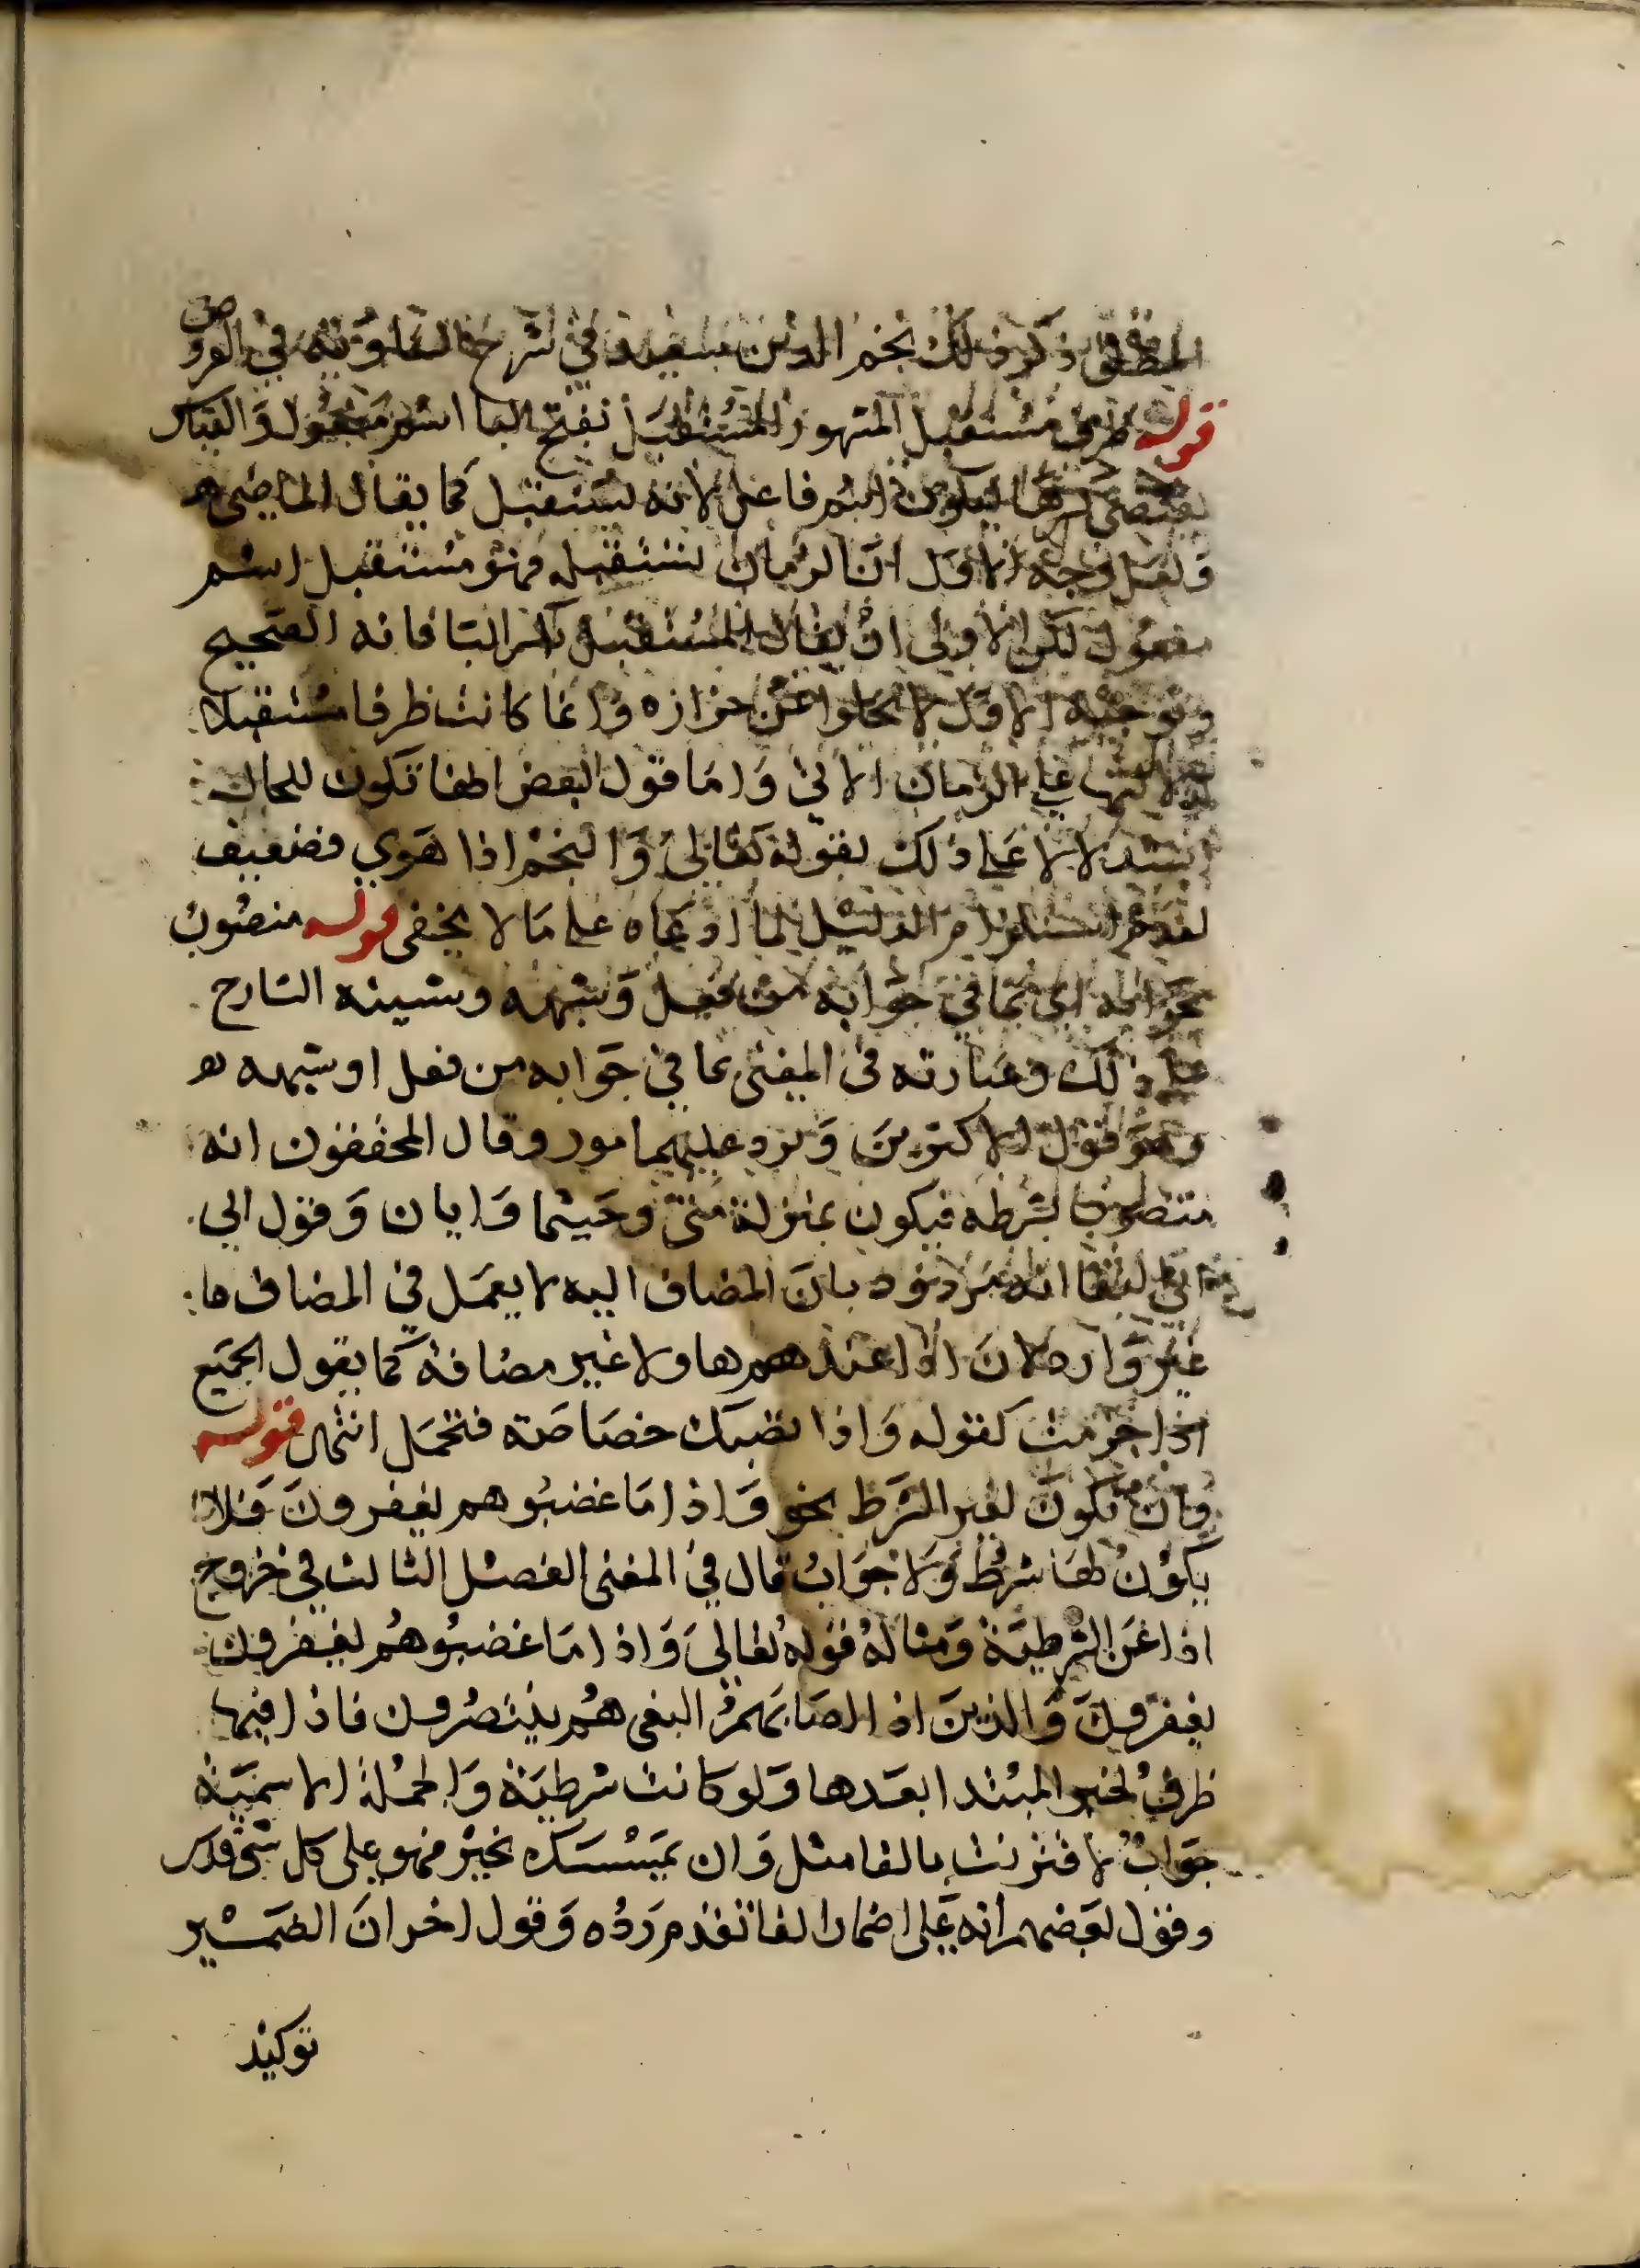 المطلق ذكر ذلك نجم الدين سعيد في شرح الساوية في العروض
قوله ظرف مستقبل المشهور المستقبل بفتح البا اسم مفعول والقياس
يقتضي كسرها ليكون اسم فاعل لانه يستقبل كما يقال الماضي ه
ولعل وجه الاول ان الزمان يستقبله فهو مستقبل اسم
مفعول لكن الاولى ان يقال المستقبل بكسر البا فانه الصحيح
وتوجيه الاول لا يخلوا عن حزازه وانما كانت ظرفا مستقبلا
لدلالتها على الزمان الاتي واما قول البعض انها تكون للحال
استدلالا على ذلك بقوله تعالى والنجم اذا هوي فضعيف
لعدم استلزام الدليل لما ادعاه على ما لا يخفى قوله منصوب
بجوابه اي بما في جوابه من فعل وشبهه وسينبه الشارح
على ذلك وعبارته في المغني بما في جوابه من فعل او شبهه ه
وهو قول الاكثرين ويرد عليهما مور وقال المحققون انه
منصوب بشرطه فيكون بمنزلة متى وحيثما وايان وقول ابي
البقا انه مردود بان المضاف اليه لا يعمل في المضاف ما
غير وارد لان اذا عند هم ها ولا غير مضافة كما يقول الجميع
اذا جزمت كقوله واذا تصبك خصاصة فتحمل انتهى قوله
وان تكون لغير الشرط نحو واذا ما غضبوا هم يغفرون فلا
يكون لها شرط ولا جواب قال في المغني الفصل الثالث في خروج
اذا عن الشرطية ومثاله قوله تعالى واذا ما غضبوا هم يغفرون
يغفرون والذين اذا اصابهم البغى هم ينتصرون فاذا فيها
ظرف لخبر المبتدا بعدها ولو كانت شرطية والجملة الاسمية
جواب لاقترنت بالفا مثل وان يمسسك بخير فهو على كل شي قدير
وقول بعضهم انه على اضمار الفا تقدم رده وقول اخر ان الضمير
توكيد